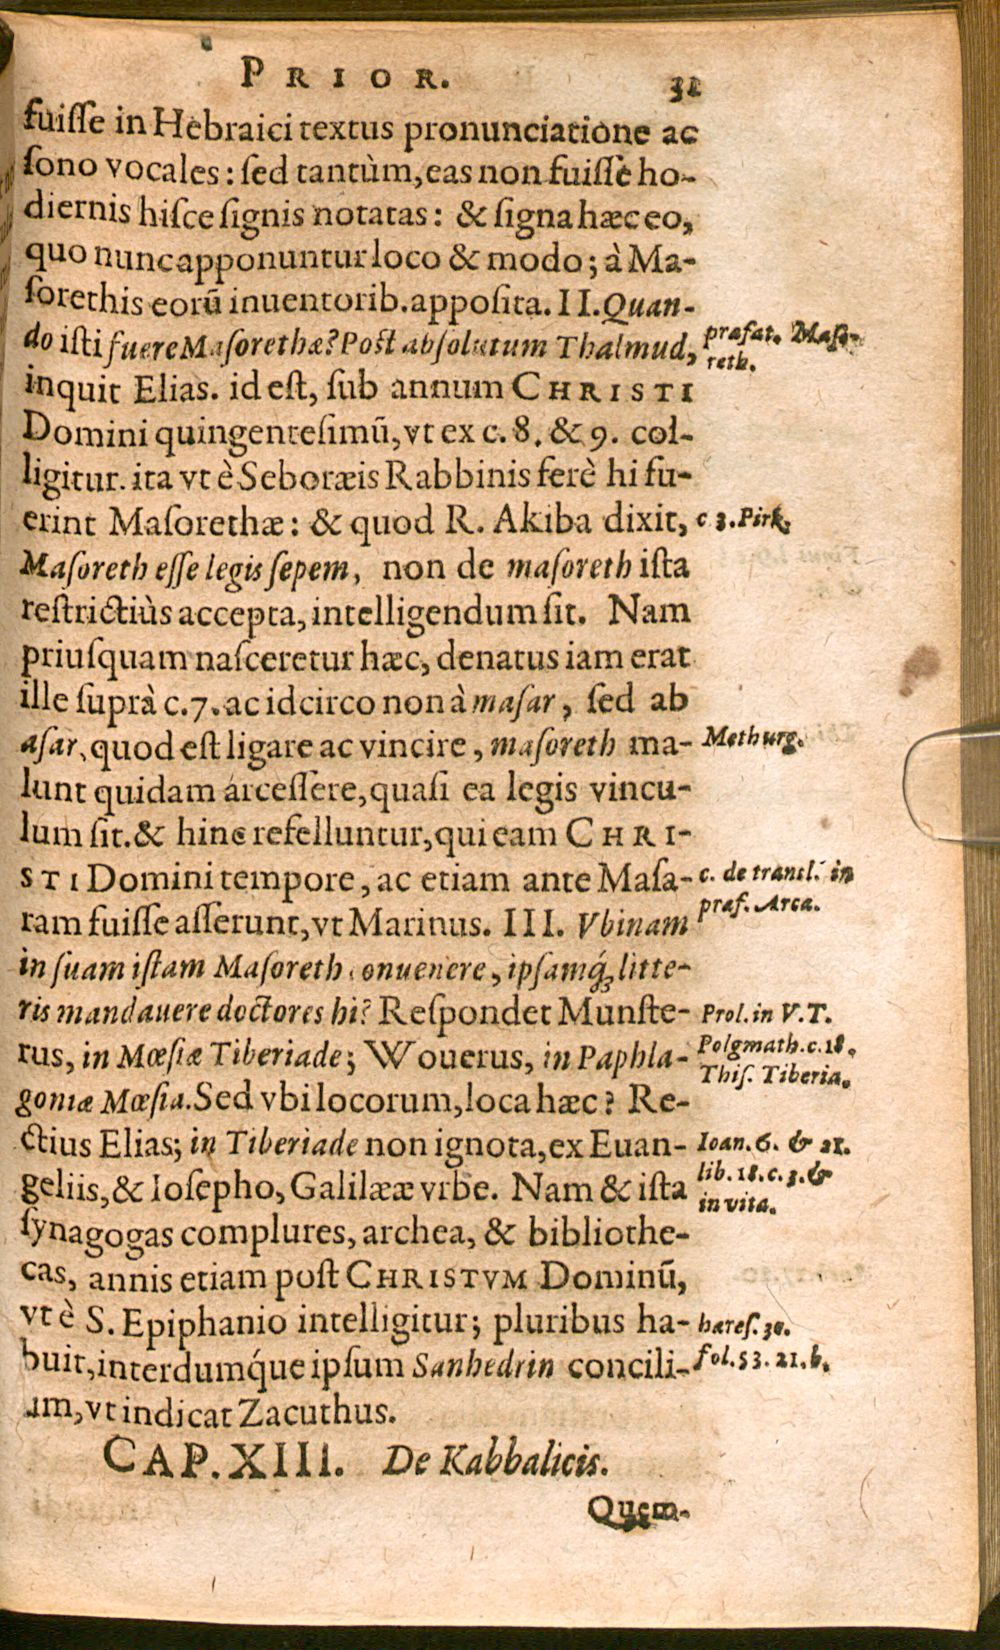 PRIOR. 31
fuiſſe in Hebraici textus pronunciatione ac
ſono vocales: ſed tantùm, eas non fuiſſe ho-
diernis hiſce ſignis notatas: & ſigna hæc eo,
quo nunc apponuntur loco & modo; à Ma-
ſorethis eorũ inuentorib. appoſita. II. Quan-
do iſti fuere Maſorethæ? Poſt abſolutum Thalmud,
præfat. Maſo-
reth.
inquit Elias. id eſt, ſub annum CHRISTI
Domini quingenteſimũ, vt ex c. 8. & 9. col-
ligitur. ita vt è Seboræis Rabbinis ferè hi fu-
erint Maſorethæ: & quod R. Akiba dixit,
c 3. Pirk.
Maſoreth eſſe legis ſepem, non de maſoreth iſta
reſtrictiùs accepta, intelligendum ſit. Nam
priuſquam naſceretur hæc, denatus iam erat
ille ſuprà c. 7. ac idcirco non à maſar, ſed ab
aſar, quod eſt ligare ac vincire, maſoreth ma-
Methurg.
lunt quidam arceſſere, quaſi ea legis vincu-
lum ſit. & hinc refelluntur, qui eam CHRI-
STI Domini tempore, ac etiam ante Maſa-
c. de tranſl. in
præf. Arca.
ram fuiſſe aſſerunt, vt Marinus. III. Vbinam
in ſuam iſtam Maſoreth conuenere, ipſamq́; litte-
ris mandauere doctores hi? Reſpondet Munſte-
Prol. in V. T.
rus, in Mœſiæ Tiberiade; Wouerus, in Paphla-
Polgmath. c. 18.
Thiſ. Tiberia.
goniæ Mœſia. Sed vbi locorum, loca hæc? Re-
ctius Elias; in Tiberiade non ignota, ex Euan-
Ioan. 6. & 21.
geliis, & Ioſepho, Galilææ vrbe. Nam & iſta
lib. 18. c. 3. &
in vita.
ſynagogas complures, archea, & bibliothe-
cas, annis etiam poſt CHRISTVM Dominũ,
vt è S. Epiphanio intelligitur; pluribus ha-
hæreſ. 30.
buit, interdumq́ue ipſum Sanhedrin concili-
fol. 53. 21. b.
um, vt indicat Zacuthus.
CAP. XIII. De Kabbalicis.
Quem-